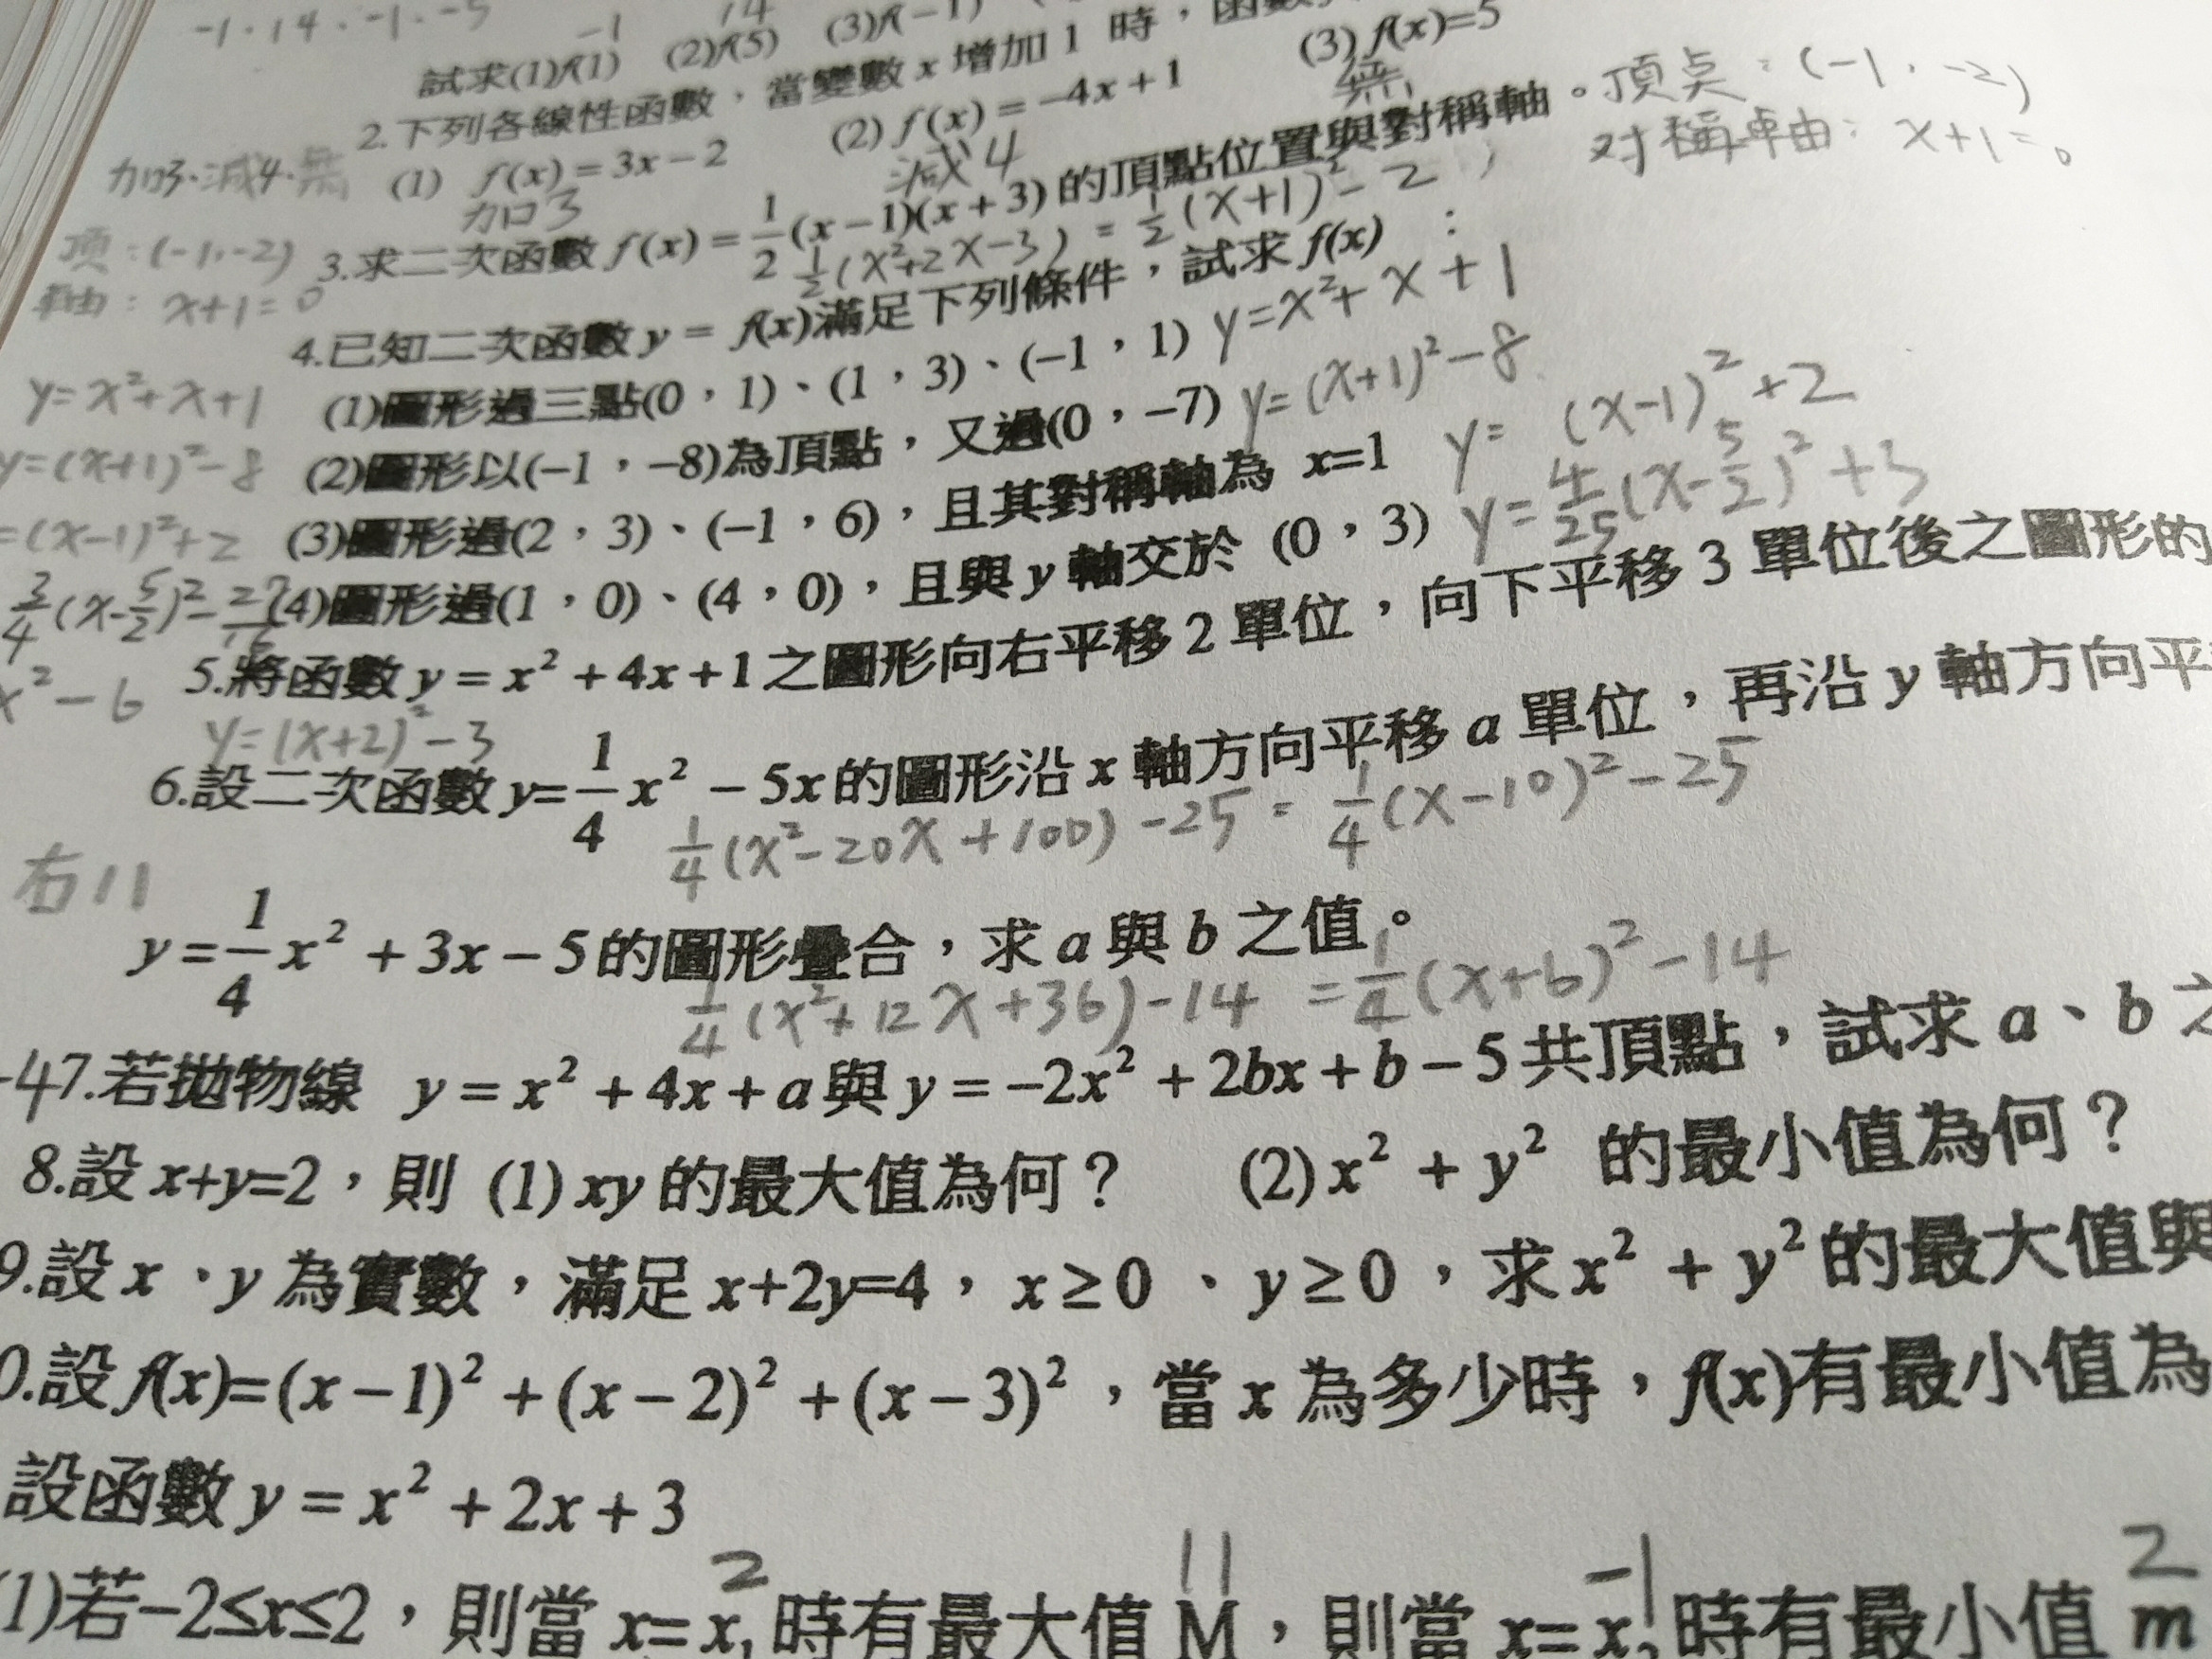 -1．14．-1．-5
-1
14
試求(1)f(1) (2)f(5) (3)f(-1)
2.下列各線性函數，當變數 x 增加 1 時，函數
(1) f(x) = 3x − 2 (2) f(x) = −4x + 1 (3) f(x)=5
加3．減4．無
加3
減4
無
3.求二次函數 f(x) = 1/2 (x − 1)(x + 3) 的頂點位置與對稱軸。
頂点：(-1，-2)
对稱軸：x+1=0
頂：(-1,-2)
軸：x+1=0
1/2(x²+2x-3) = 1/2(x+1)²-2
4.已知二次函數 y = f(x)滿足下列條件，試求 f(x) ：
(1)圖形過三點(0，1)、(1，3)、(−1，1) y=x²+x+1
y=x²+x+1
(2)圖形以(−1，−8)為頂點，又過(0，−7) y=(x+1)²-8
y=(x+1)²-8
(3)圖形過(2，3)、(−1，6)，且其對稱軸為 x=1 y= (x-1)²+2
=(x-1)²+2
(4)圖形過(1，0)、(4，0)，且與 y 軸交於 (0，3) y=4/25(x-5/2)²+3
3/4(x-5/2)²-27/16
5.將函數 y = x² + 4x + 1 之圖形向右平移 2 單位，向下平移 3 單位後之圖形的
x²-6
y=(x+2)²-3
6.設二次函數 y= 1/4 x² − 5x 的圖形沿 x 軸方向平移 a 單位，再沿 y 軸方向平
1/4(x²-20x+100)-25 = 1/4(x-10)²-25
右11
y = 1/4 x² + 3x − 5 的圖形疊合，求 a 與 b 之值。
1/4(x²+12x+36)-14 = 1/4(x+6)²-14
-4
7.若拋物線 y = x² + 4x + a 與 y = −2x² + 2bx + b − 5 共頂點，試求 a、b
8.設 x+y=2，則 (1) xy 的最大值為何？ (2) x² + y² 的最小值為何？
9.設 x、y 為實數，滿足 x+2y=4， x ≥ 0 、 y ≥ 0，求 x² + y² 的最大值與
0.設 f(x)=(x − 1)² + (x − 2)² + (x − 3)²，當 x 為多少時，f(x)有最小值為
設函數 y = x² + 2x + 3
2 11 -1 2
(1)若−2≤x≤2，則當 x= x₁ 時有最大值 M，則當 x= x₂ 時有最小值 m